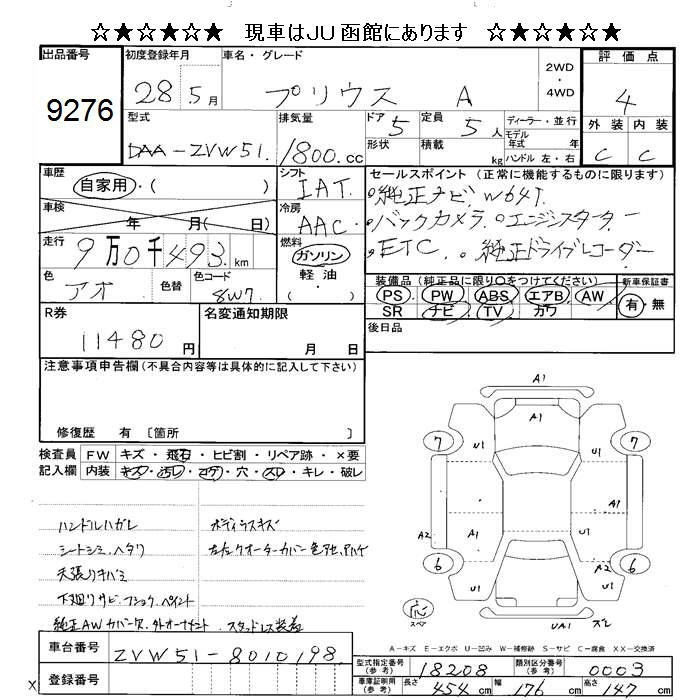 ☆★☆★☆★ 現車はJU函館にあります ☆★☆★☆★
出品番号
9276
初度登録年月
28 5月
車名・グレード
プリウス A
2WD
・
4WD
評価点
4
外装 内装
C C
型式
DAA-ZVW51.
排気量
1800.cc
ドア
5
定員
5人
形状
積載
kg
ディーラー・並行
モデル
年式 年
ハンドル 左・右
車歴
自家用・( )
車検
年 月( 日)
走行
9万0千493km
色
アオ
色替
色コード
8W7.
シフト
IAT.
冷房
AAC.
燃料
ガソリン
軽油
( )
セールスポイント(正常に機能するものに限ります)
。純正ナビ W64T.
。バックカメラ. 。エンジンスターター
。ETC. 。純正ドライブレコーダー
装備品(純正品に限り○をつけてください)
PS PW ABS エアB AW
SR ナビ TV カワ
新車保証書
有・無
後日品
R券
11480円
名変通知期限
月 日
注意事項申告欄(不具合内容等は具体的に記入して下さい)
修復歴 有 〔箇所 〕
検査員
記入欄
FW キズ・飛石・ヒビ割・リペア跡・×要
内装 キズ・汚レ・コゲ・穴・スレ・キレ・破レ
ハンドルハガレ
シートシミ、ヘタリ
天張りキバミ
下廻リサビ.フショク.ペイント
ボディラスキズ
左右クオーターカバー色アセ、ハゲ
純正AWカバー欠.外オーナメント.スタッドレス装着
車台番号
ZVW51-8010198
登録番号
X
A1
A1
7 U1 U1 7
A2 A1 U1 A2
6 U1 U1 6
応
スペア
UA1 ズレ
A-キズ E-エクボ U-凹み W-補修跡 S-サビ C-腐食 XX-交換済
型式指定番号
(参考)
18208
類別区分番号
(参考)
0003
車庫証明用
(参考)
長さ 454cm 幅 176cm 高さ 147cm